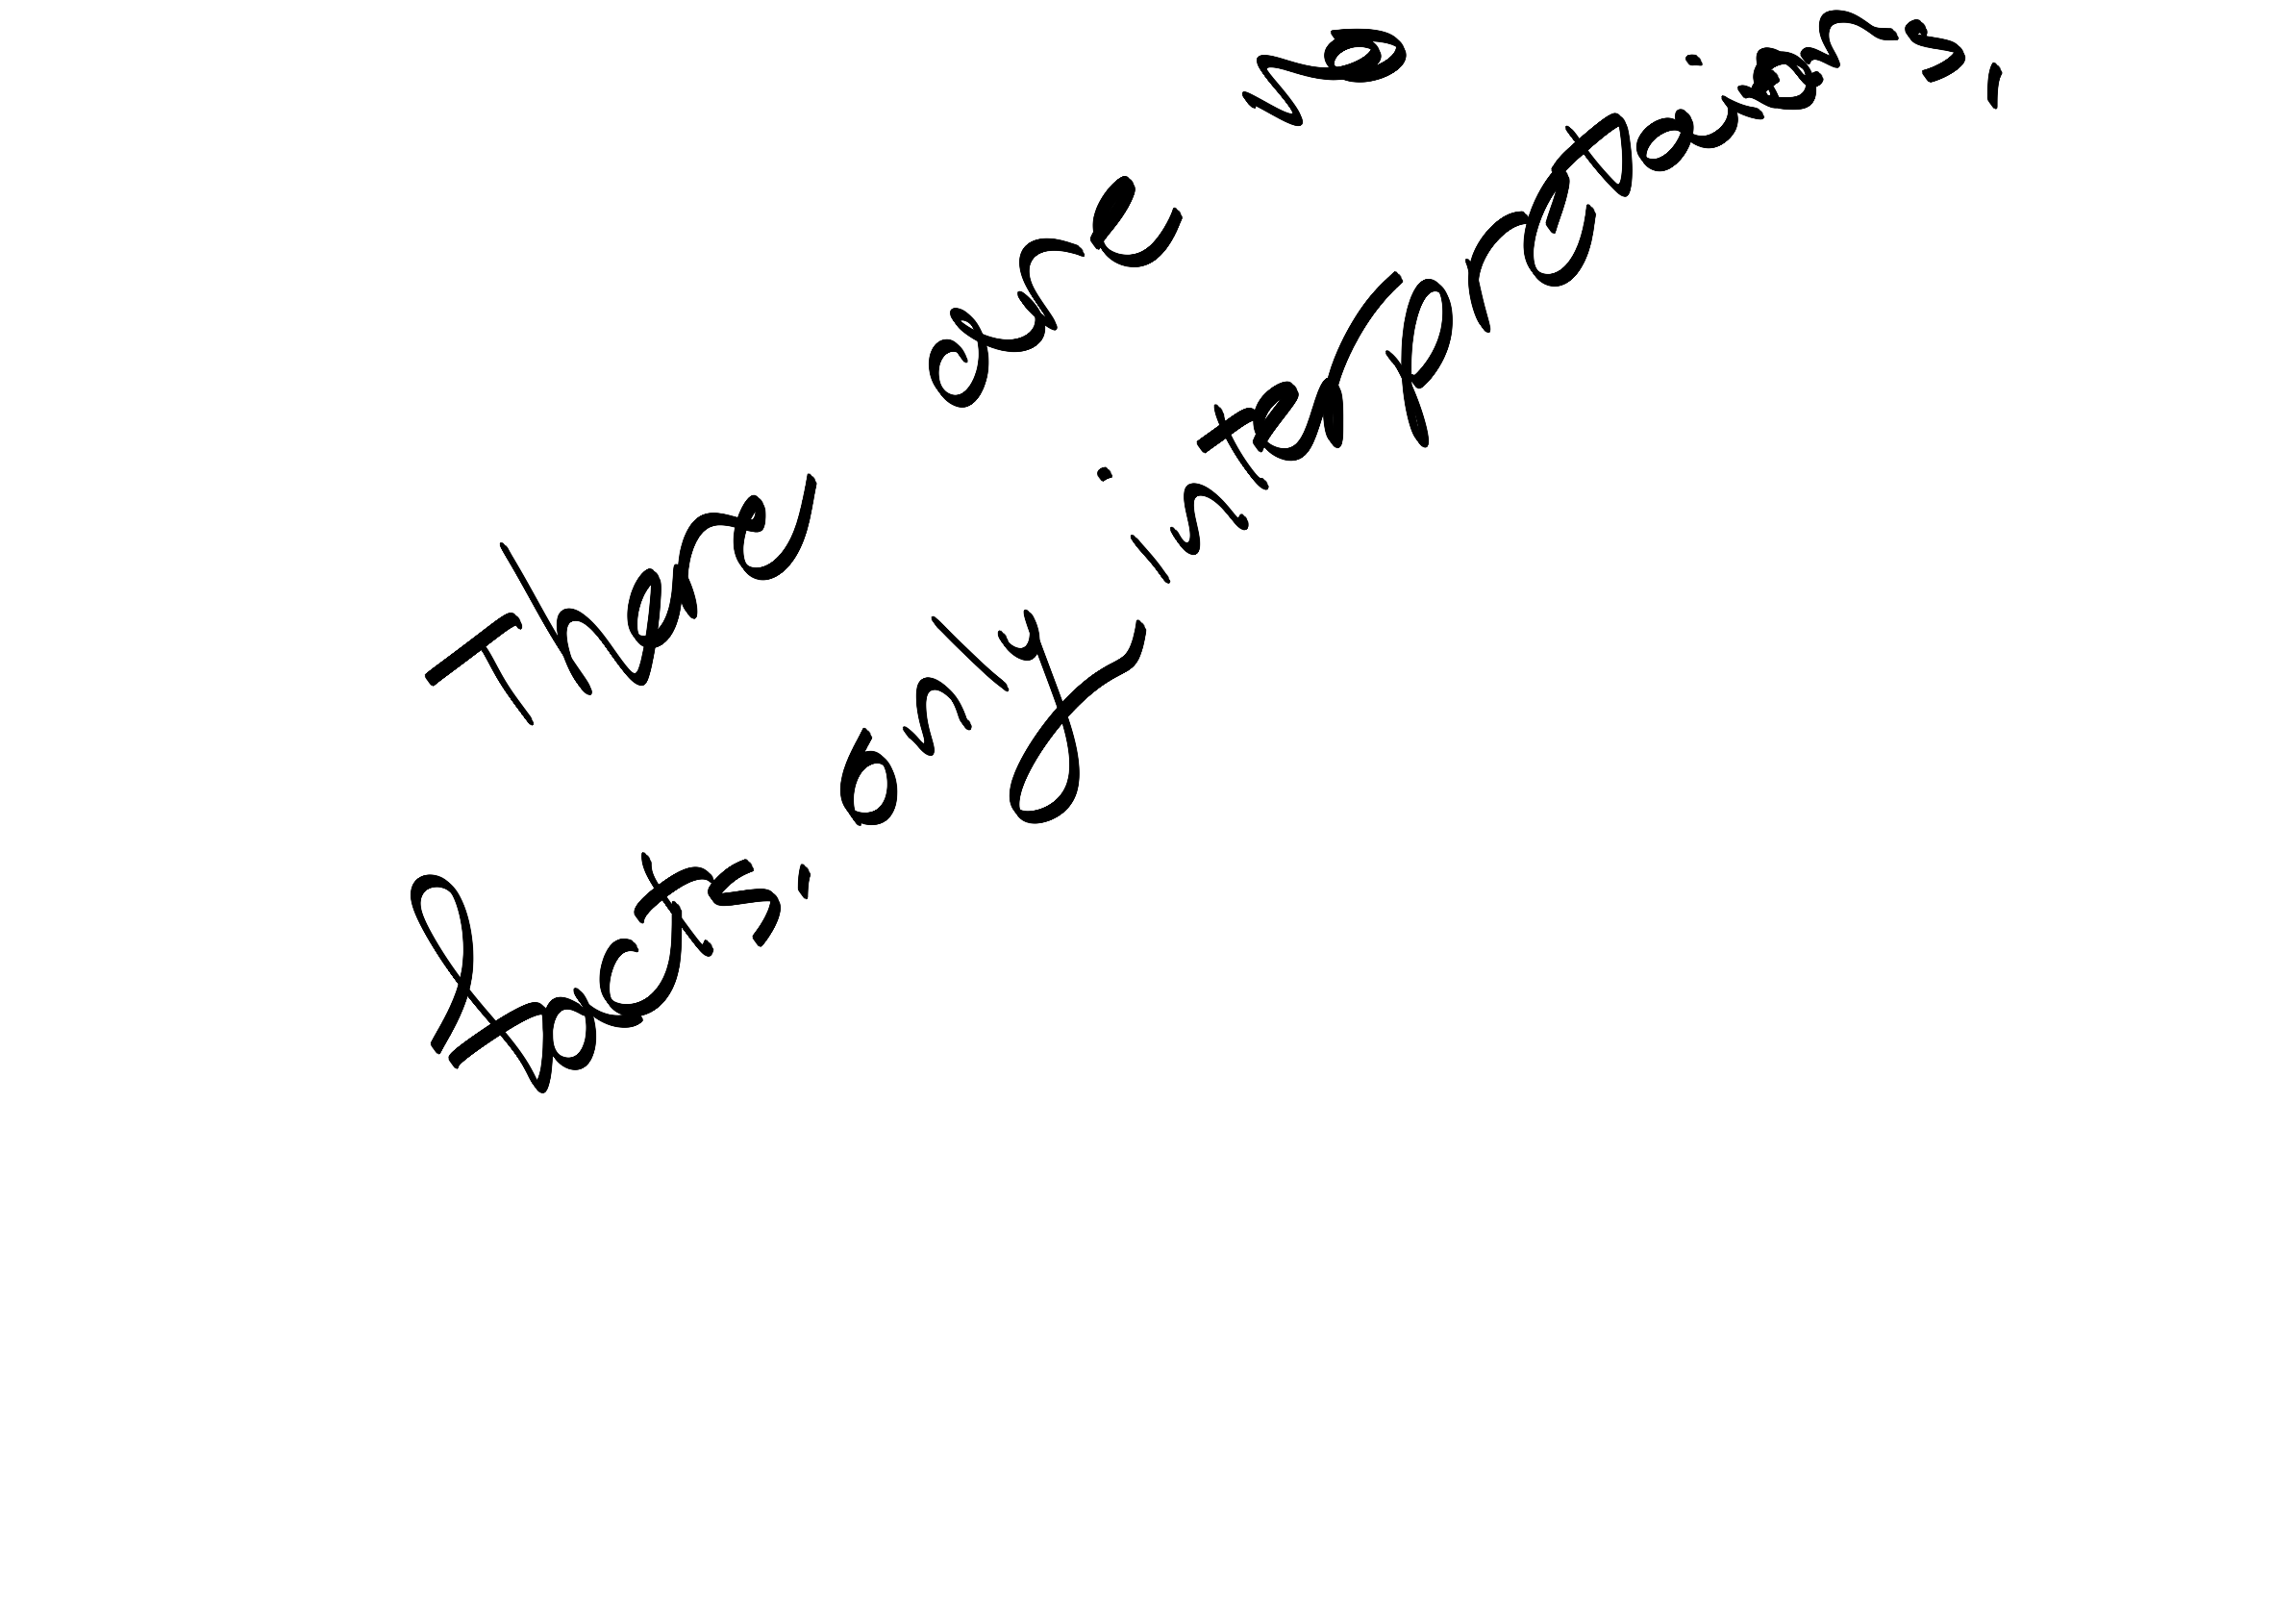 There are no
facts, only interpretaions,